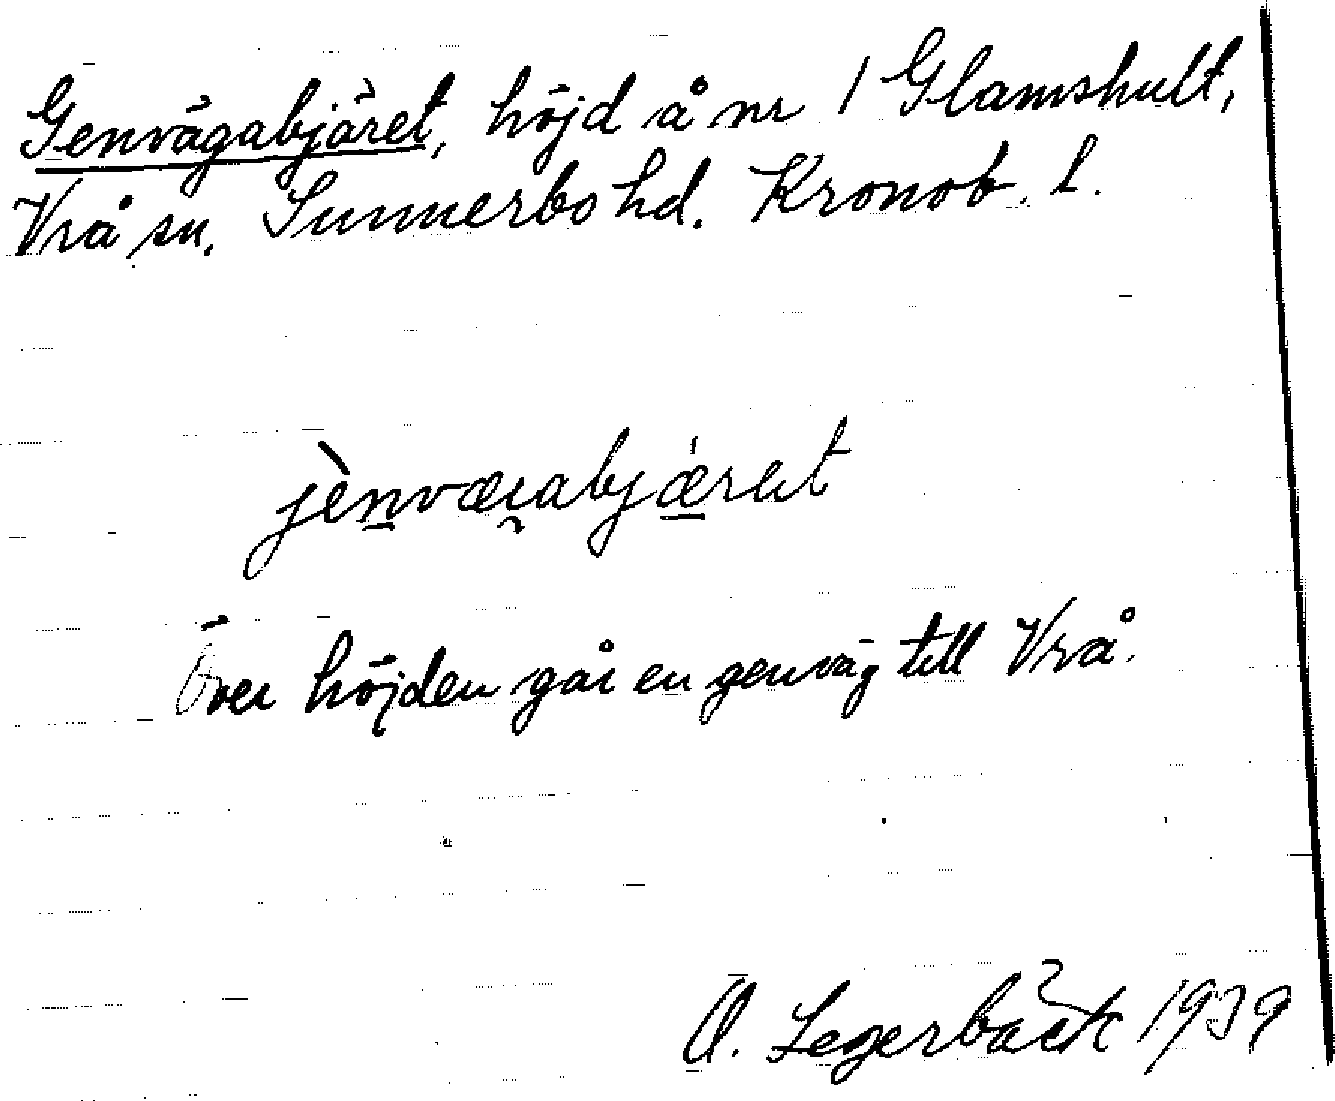 Genvägabjäret, höjd å nr 1 Glamshult,
Vrå sn. Sunnerbo hd. Kronob. l.
jènvæi̯abjǽrət
Över höjden går en genväg till Vrå.
O. Legerbäck 1939